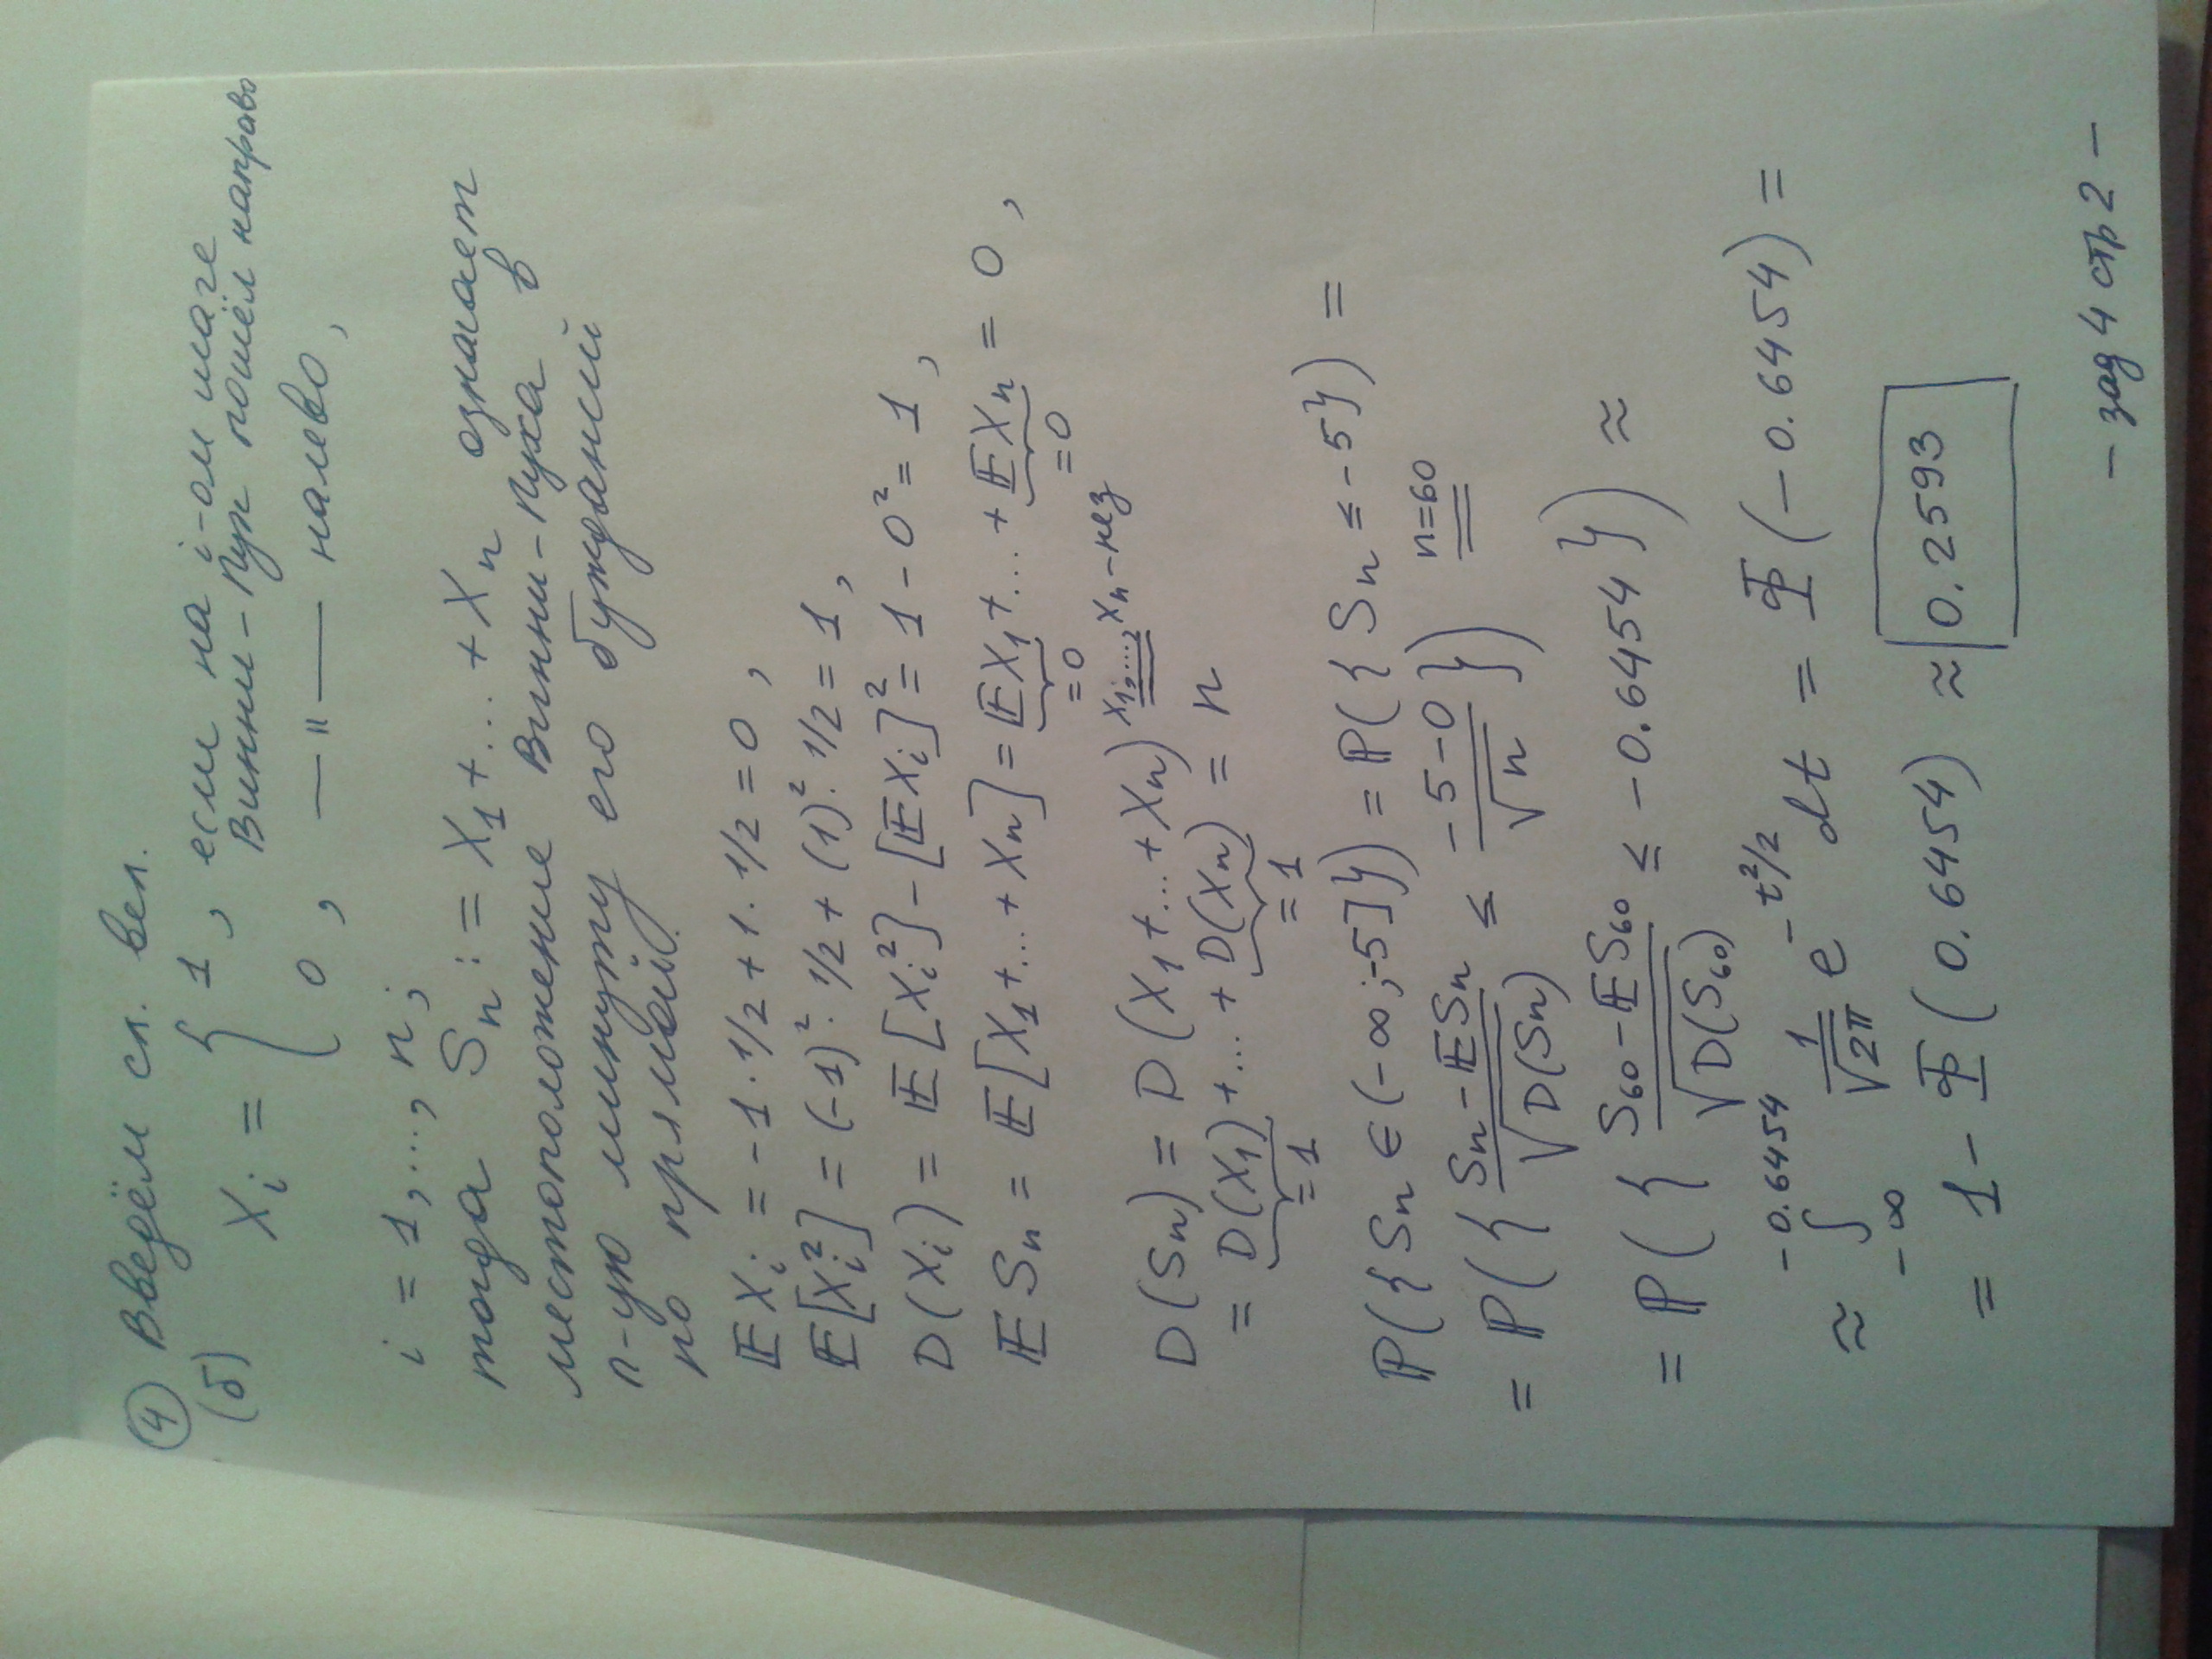 ④ Введём сл. вел.
(б) Xᵢ = { 1, если на i-ом шаге
Винни-Пух пошёл направо
0, —"— налево,
i = 1,..., n;
тогда Sₙ := X₁+...+Xₙ означает
местоположение Винни-Пуха в
n-ую минуту его бужданий
по прямой.
𝔼Xᵢ = -1·1/2+1·1/2=0,
𝔼[Xᵢ²] = (-1)²·1/2+(1)²·1/2=1,
D(Xᵢ) = 𝔼[Xᵢ²]-[𝔼Xᵢ]²=1-0²=1,
𝔼Sₙ = 𝔼[X₁+...+Xₙ]=𝔼X₁+...+𝔼Xₙ = 0,
=0 =0
X₁,...,Xₙ-нез
D(Sₙ) = D(X₁+...+Xₙ) =
= D(X₁)+...+D(Xₙ) = n
=1 =1
ℙ({Sₙ∈(-∞;-5]})=ℙ({Sₙ≤-5})=
= ℙ({(Sₙ-𝔼Sₙ)/√D(Sₙ) ≤ (-5-0)/√n}) =(n=60)
= ℙ({(S₆₀-𝔼S₆₀)/√D(S₆₀) ≤ -0.6454}) ≈
≈ ∫_{-∞}^{-0.6454} 1/√2π e^{-t²/2} dt = Φ(-0.6454) =
= 1-Φ(0.6454) ≈ 0.2593
- зад 4 стр 2 -